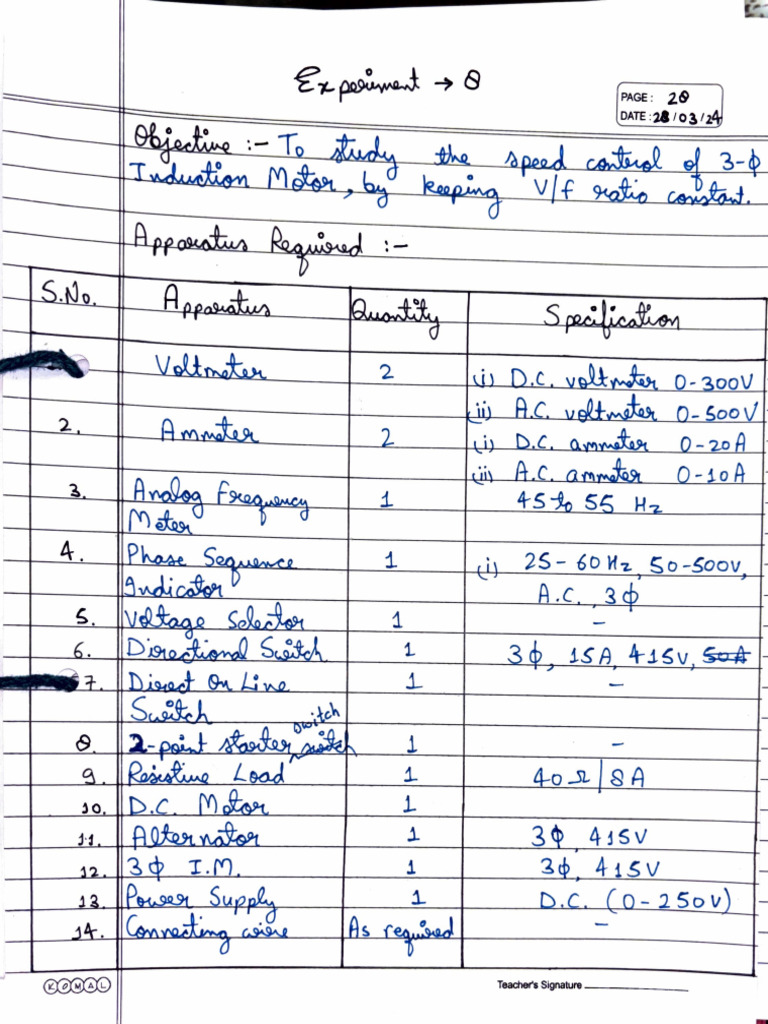 Experiment → 8
PAGE: 28
DATE: 28/03/24
Objective :- To study the speed control of 3-ϕ
Induction Motor, by keeping V/f ratio constant.
Apparatus Required :-
S.No. Apparatus Quantity Specification
Voltmeter 2 (i) D.C. voltmeter 0-300V
(ii) A.C. voltmeter 0-500V
2. Ammeter 2 (i) D.C. ammeter 0-20A
(ii) A.C. ammeter 0-10A
3. Analog Frequency 1 45 to 55 Hz
Meter
4. Phase Sequence 1 (i) 25-60Hz, 50-500V,
Indicator A.C., 3ϕ
5. Voltage Selector 1 -
6. Directional Switch 1 3ϕ, 15A, 415V, 50A
7. Direct On Line 1 -
Switch
switch
8. 2-point starter switch 1 -
9. Resistive Load 1 40Ω/8A
10. D.C. Motor 1
11. Alternator 1 3ϕ, 415V
12. 3ϕ I.M. 1 3ϕ, 415V
13. Power Supply 1 D.C. (0-250V)
14. Connecting wire As required -
KOMAL
Teacher's Signature